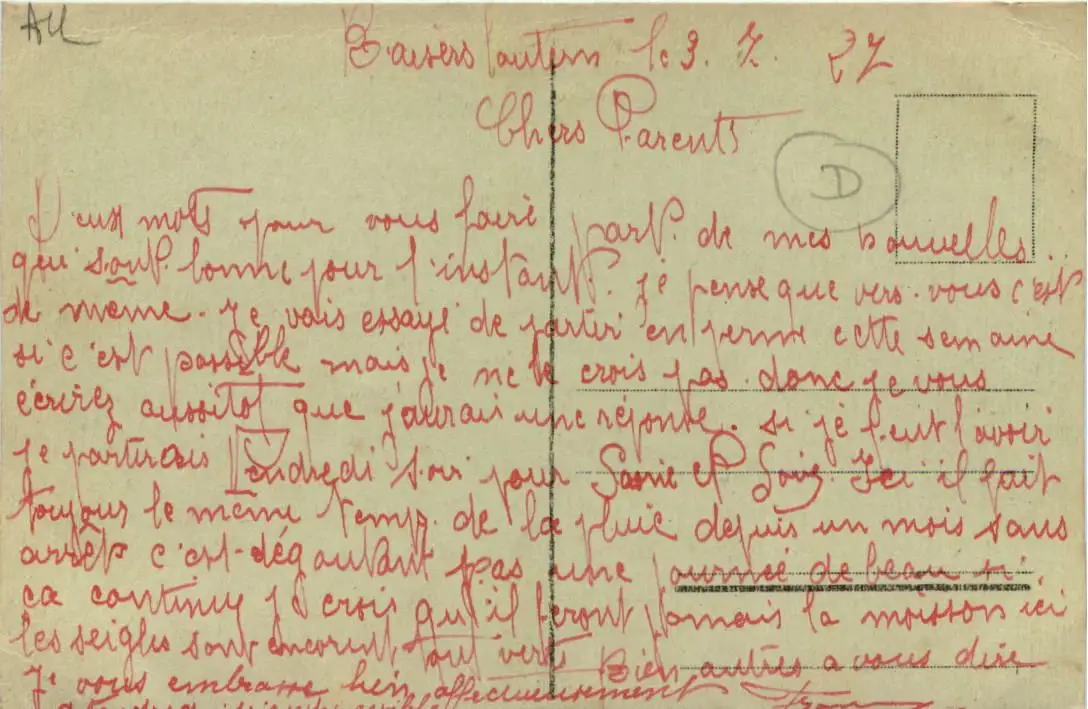 AU
Kaiserslautern le 3. 7. 27
Chers Parents
D
Deux mots pour vous faire part de mes nouvelles
qui sont bonne pour l'instant. Je pense que vers vous c'est
de même. Je vais essayé de partir en perme cette semaine
si c'est possible mais je ne le crois pas donc je vous
écrirez aussitot que j'aurais une réponse. si je peut l'avoir
je partirais Vendredi soir pour Saone et Loire. Ici il fait
toujours le même temps. de la pluie depuis un mois sans
arrêt c'est dégoutant pas une journée de beau si
ca continu je crois qu'il feront jamais la moisson ici
les seigles sont encorent tout verts Rien autres a vous dire
Je vous embrasse bien affectueusement